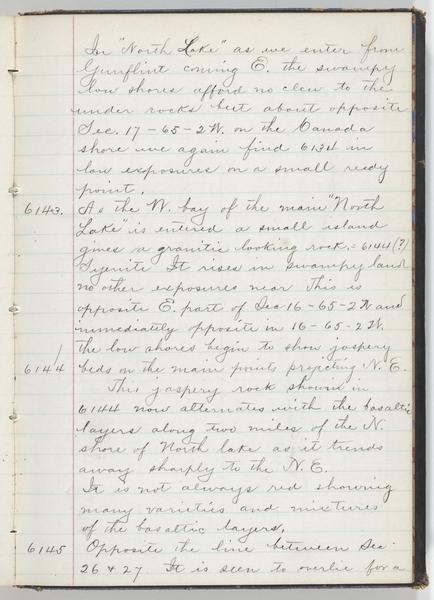 In "North Lake" as we enter from
Gunflint coming E. the swampy
low shores afford no clew to the
under rocks but about opposite
Sec. 17-65-2W. on the Canada
shore we again find 6134 in
low exposures on a small reedy
point.
6143. As the W. bay of the main "North
Lake" is entered a small island
gives a granitic looking rock = 6144(?)
Syenite It rises in swampy land
no other exposures near This is
opposite E. part of Sec 16-65-2W and
immediately opposite in 16-65-2W.
the low shores begin to show jaspery
6144 beds on the main points projecting N.E.
This jaspery rock shown in
6144 now alternates with the basaltic
layers along two miles of the N.
shore of North lake as it trends
away sharply to the N.E.
It is not always red showing
many varieties and mixtures
of the basaltic layers.
6145 Opposite the line between Sec
26 & 27 It is seen to overlie for a